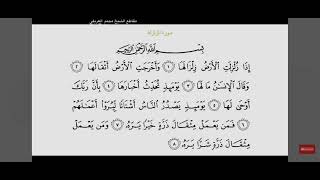 مقاطع الشيخ محمد العريفي
سورة الزلزلة
بِسْمِ اللَّهِ الرَّحْمَٰنِ الرَّحِيمِ
إِذَا زُلْزِلَتِ الْأَرْضُ زِلْزَالَهَا ١ وَأَخْرَجَتِ الْأَرْضُ أَثْقَالَهَا ٢
وَقَالَ الْإِنسَٰنُ مَا لَهَا ٣ يَوْمَئِذٍ تُحَدِّثُ أَخْبَارَهَا ٤ بِأَنَّ رَبَّكَ
أَوْحَىٰ لَهَا ٥ يَوْمَئِذٍ يَصْدُرُ النَّاسُ أَشْتَاتًا لِّيُرَوْا أَعْمَٰلَهُمْ
٦ فَمَن يَعْمَلْ مِثْقَالَ ذَرَّةٍ خَيْرًا يَرَهُ ٧ وَمَن يَعْمَلْ
مِثْقَالَ ذَرَّةٍ شَرًّا يَرَهُ ٨